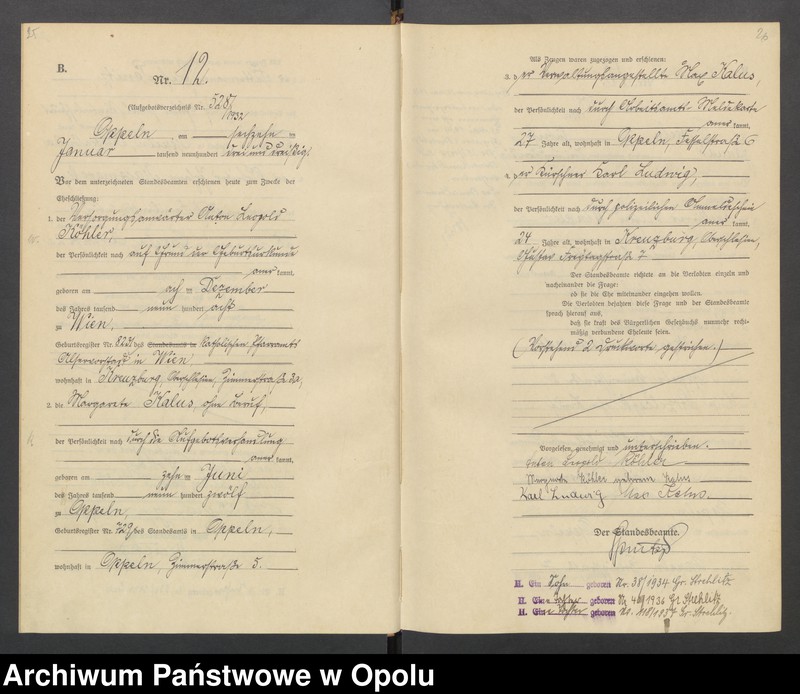 B.
Nr. 12.
(Aufgebotsverzeichnis Nr. 528/
1932
Oppeln, am sechzehn ten
Januar tausend neunhundert dreiunddreißig.
Vor dem unterzeichneten Standesbeamten erschienen heute zum Zwecke der
Eheschließung:
1. der Versorgungsanwärter Anton Leopold
Köhler,
der Persönlichkeit nach auf Grund der Geburtsurkunde
aner kannt,
geboren am ach ten Dezember
des Jahres tausend neun hundert acht
zu Wien,
Geburtsregister Nr. des Standesamts in katholischen Pfarramts
Alservorstadt in Wien
wohnhaft in Kreuzburg, Oberschlesien, Zimmerstraße
2. die Margarete Kalus, ohne Beruf,
der Persönlichkeit nach durch die Aufgebotsverhandlung
aner kannt,
geboren am zehn ten Juni
des Jahres tausend neun hundert zwölf
zu Oppeln,
Geburtsregister Nr. 729 des Standesamts in Oppeln,
wohnhaft in Oppeln, Zimmerstraße 5.
26
Als Zeugen waren zugezogen und erschienen:
3. der Verwaltungsangestellte Max Kalus,
der Persönlichkeit nach durch Arbeitsamts-Meldekarte
aner kannt,
27 Jahre alt, wohnhaft in Oppeln, Fesselstraße 6
4. der Kürschner Karl Ludwig,
der Persönlichkeit nach durch polizeilichen Anmeldeschein
aner kannt,
24 Jahre alt, wohnhaft in Kreuzburg, Oberschlesien,
Gustav Freytagstraße 7
Der Standesbeamte richtete an die Verlobten einzeln und
nacheinander die Frage:
ob sie die Ehe miteinander eingehen wollen.
Die Verlobten bejahten diese Frage und der Standesbeamte
sprach hierauf aus,
daß sie kraft des Bürgerlichen Gesetzbuchs nunmehr recht-
mäßig verbundene Eheleute seien.
(Vorstehend 2 Druckworte gestrichen.)
Vorgelesen, genehmigt und unterschrieben.
Anton Leopold Köhler
Margarete Köhler geborene Kalus
Karl Ludwig Max Kalus.
Der Standesbeamte.
H. Ein Sohn geboren Nr. 38/1934 Gr. Strehlitz
H. Eine Tochter geboren Nr. /1936 Gr. Strehlitz
H. Eine Tochter geboren Nr. Gr. Strehlitz.
Archiwum Państwowe w Opolu